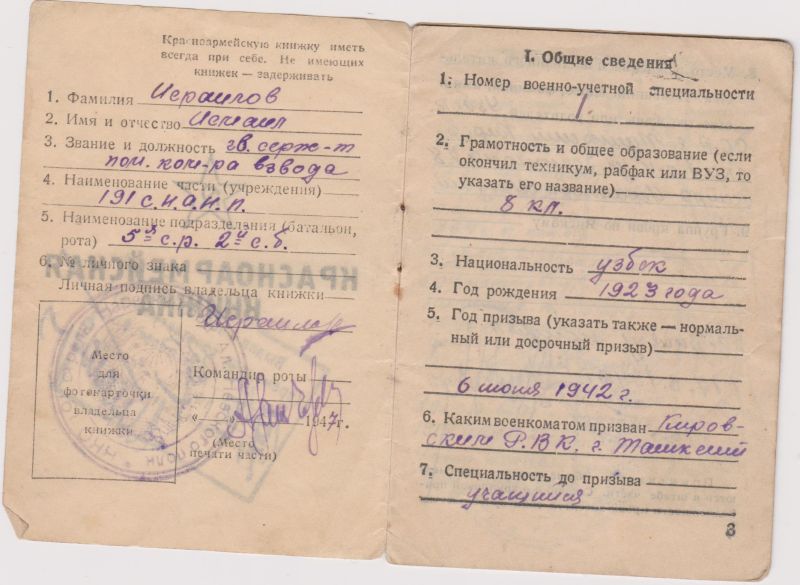 Красноармейскую книжку иметь
всегда при себе. Не имеющих
книжек — задерживать
1. Фамилия Исраилов
2. Имя и отчество Исмаил
3. Звание и должность гв. серж-т
пом. ком-ра взвода
4. Наименование части (учреждения)
191 с.н.а.н.п.
5. Наименование подразделения (батальон,
рота) 5я с.р. 2й с.б.
6. № личного знака
Личная подпись владельца книжки
Исраилов
КРАСНОАРМЕЙСКАЯ
КНИЖКА
Место
для
фотокарточки
владельца
книжки
Командир роты
„ “ 1947г.
(Место
печати части)
I. Общие сведения
1. Номер военно-учетной специальности
1
2. Грамотность и общее образование (если
окончил техникум, рабфак или ВУЗ, то
указать его название)
8 кл.
3. Национальность узбек
4. Год рождения 1923 года
5. Год призыва (указать также — нормаль-
ный или досрочный призыв)
6 июня 1942 г.
6. Каким военкоматом призван Киров-
ским Р.В.К. г. Ташкент
7. Специальность до призыва
учащийся
3